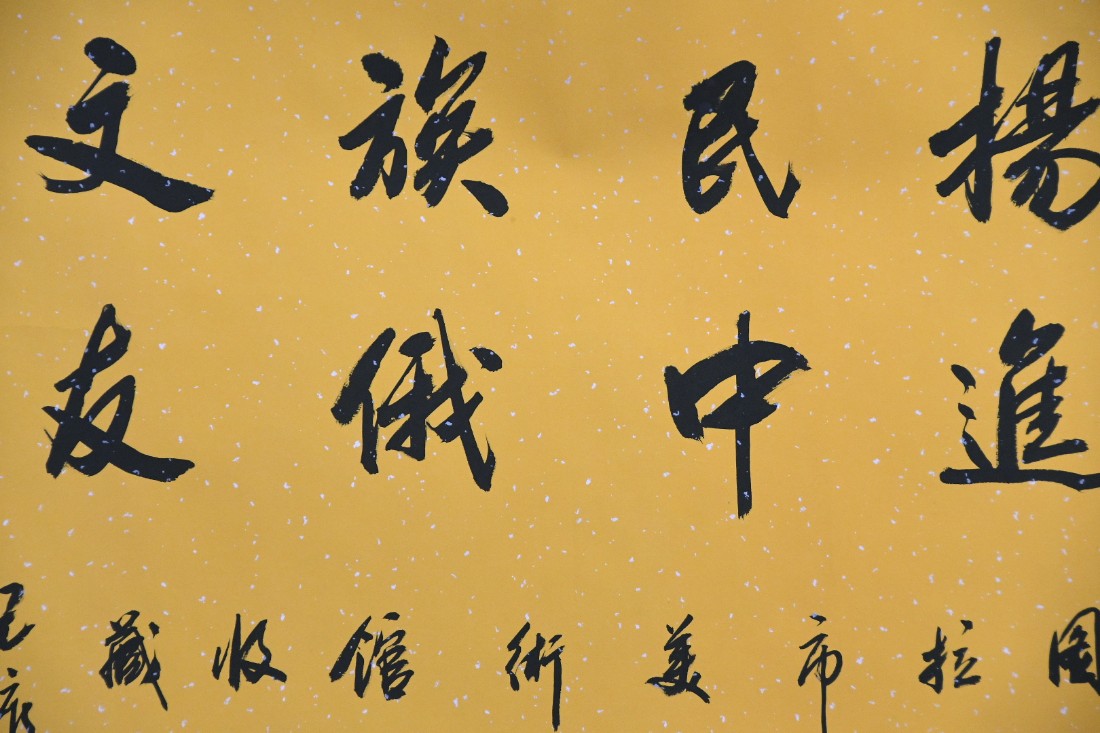 揚民族文
進中俄友
圖拉市美術馆收藏